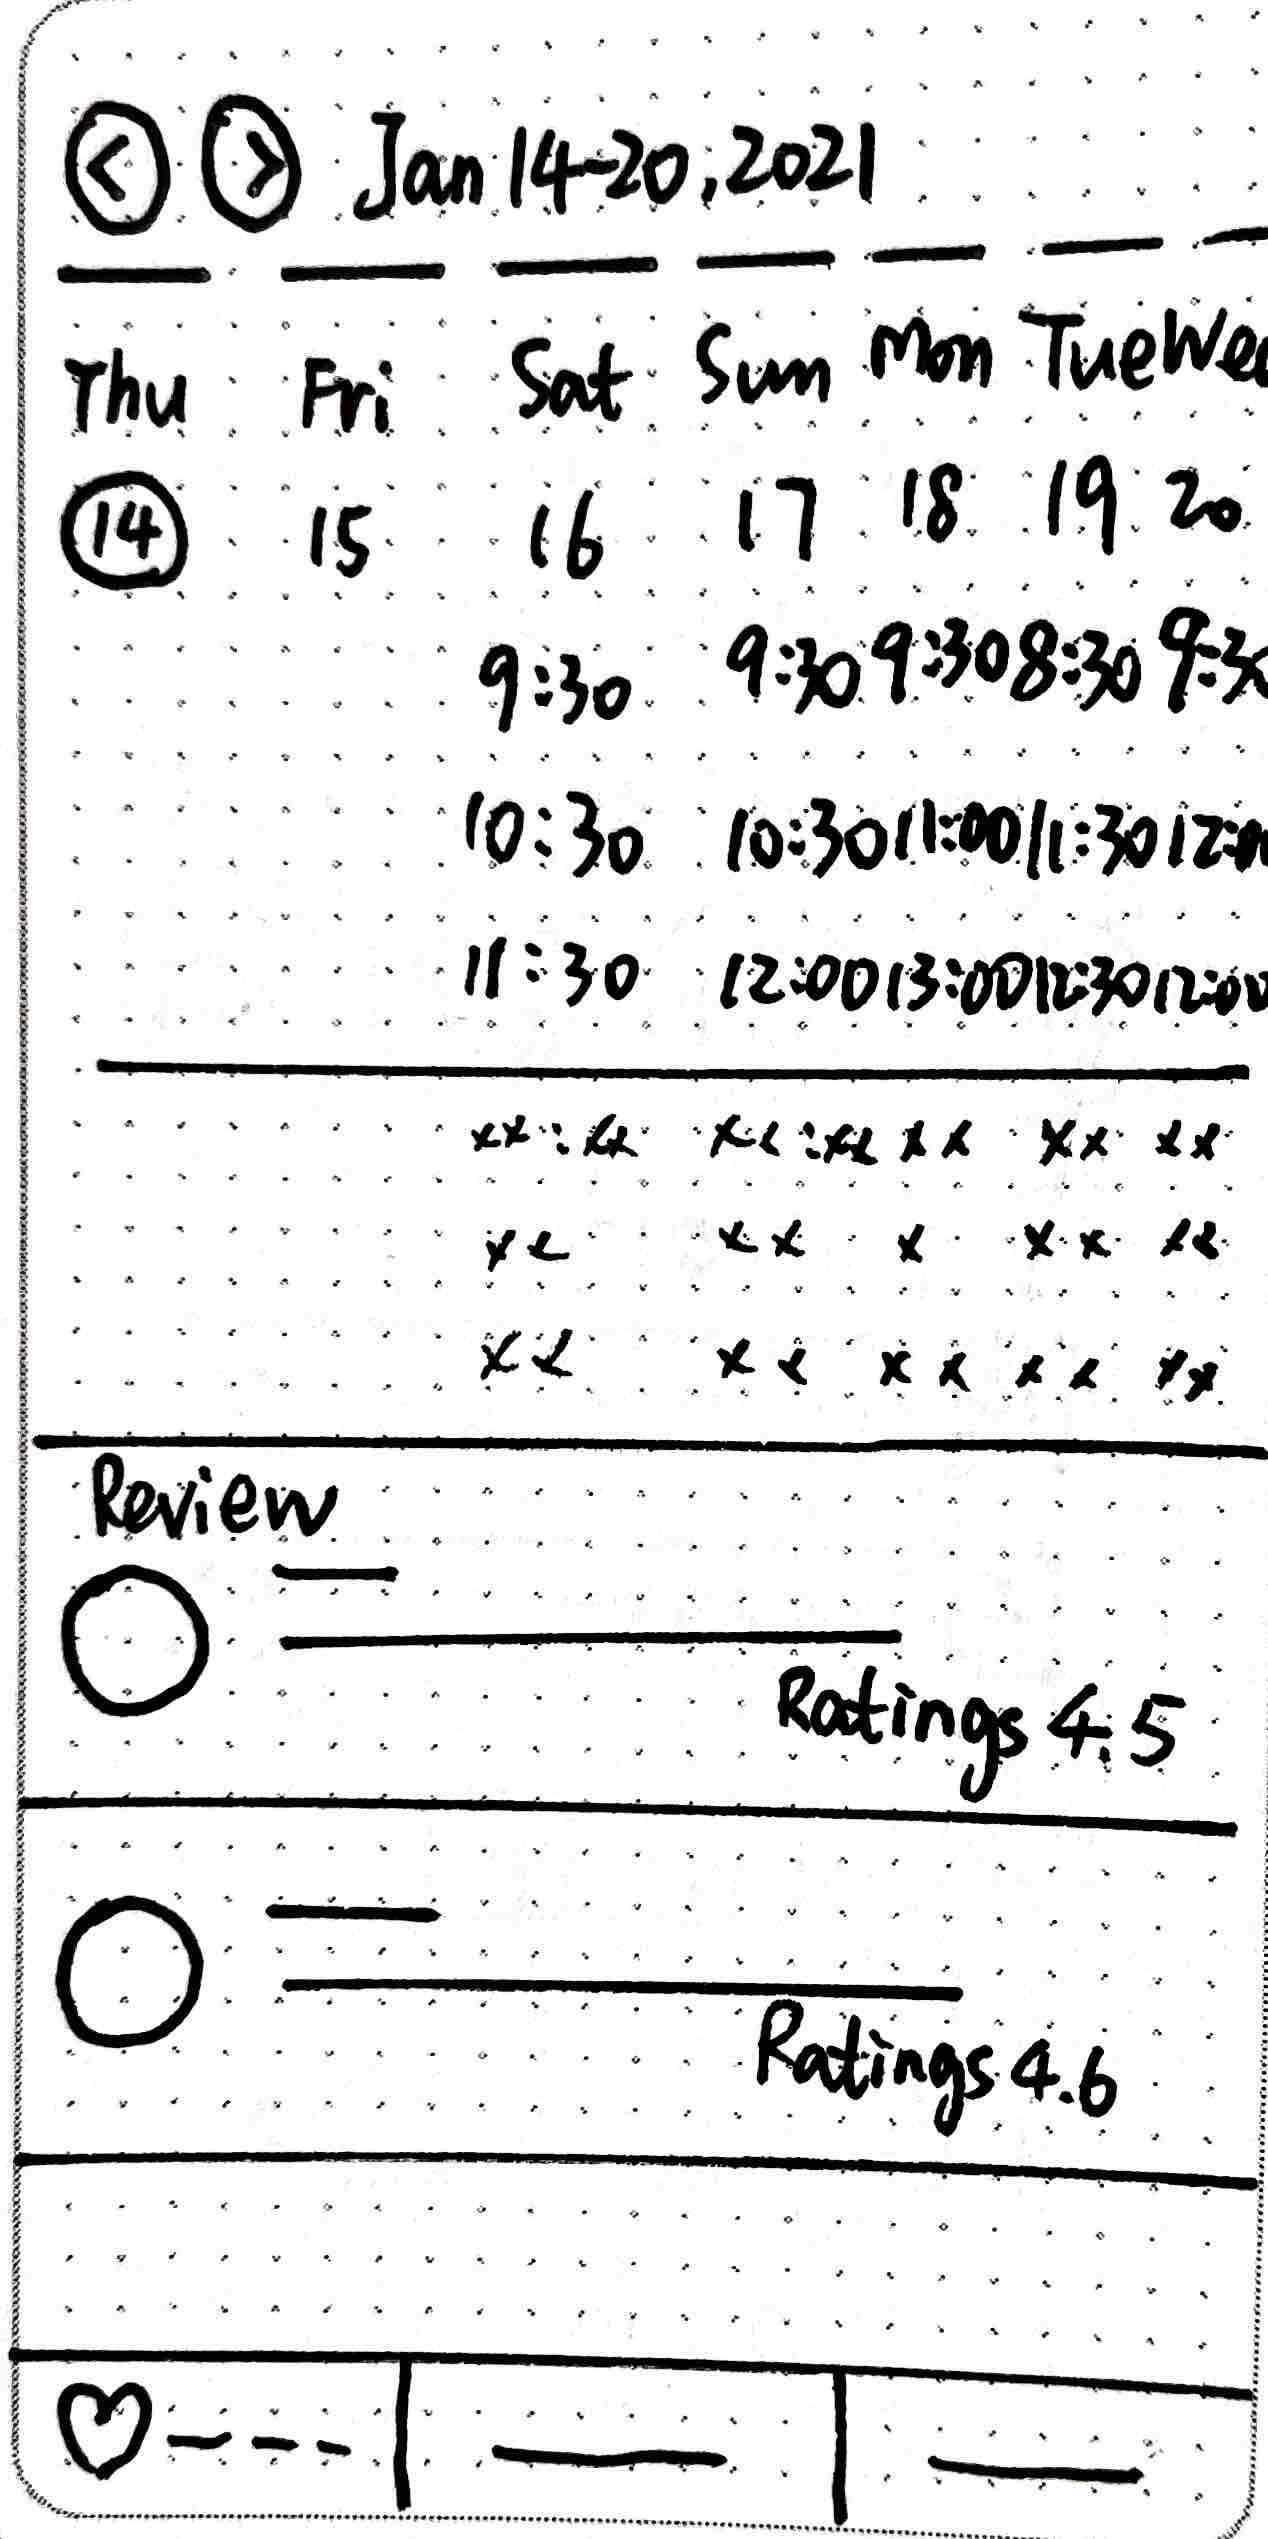 < > Jan 14-20, 2021
Thu Fri Sat Sun Mon Tue Wed
14 15 16 17 18 19 20
9:30 9:30 9:30 8:30 9:30
10:30 10:30 11:00 11:30 12:00
11:30 12:00 13:00 12:30 12:00
xx:xx xx:xx xx xx xx
xx xx x xx xx
xx xx xx xx xx
Review
Ratings 4.5
Ratings 4.6